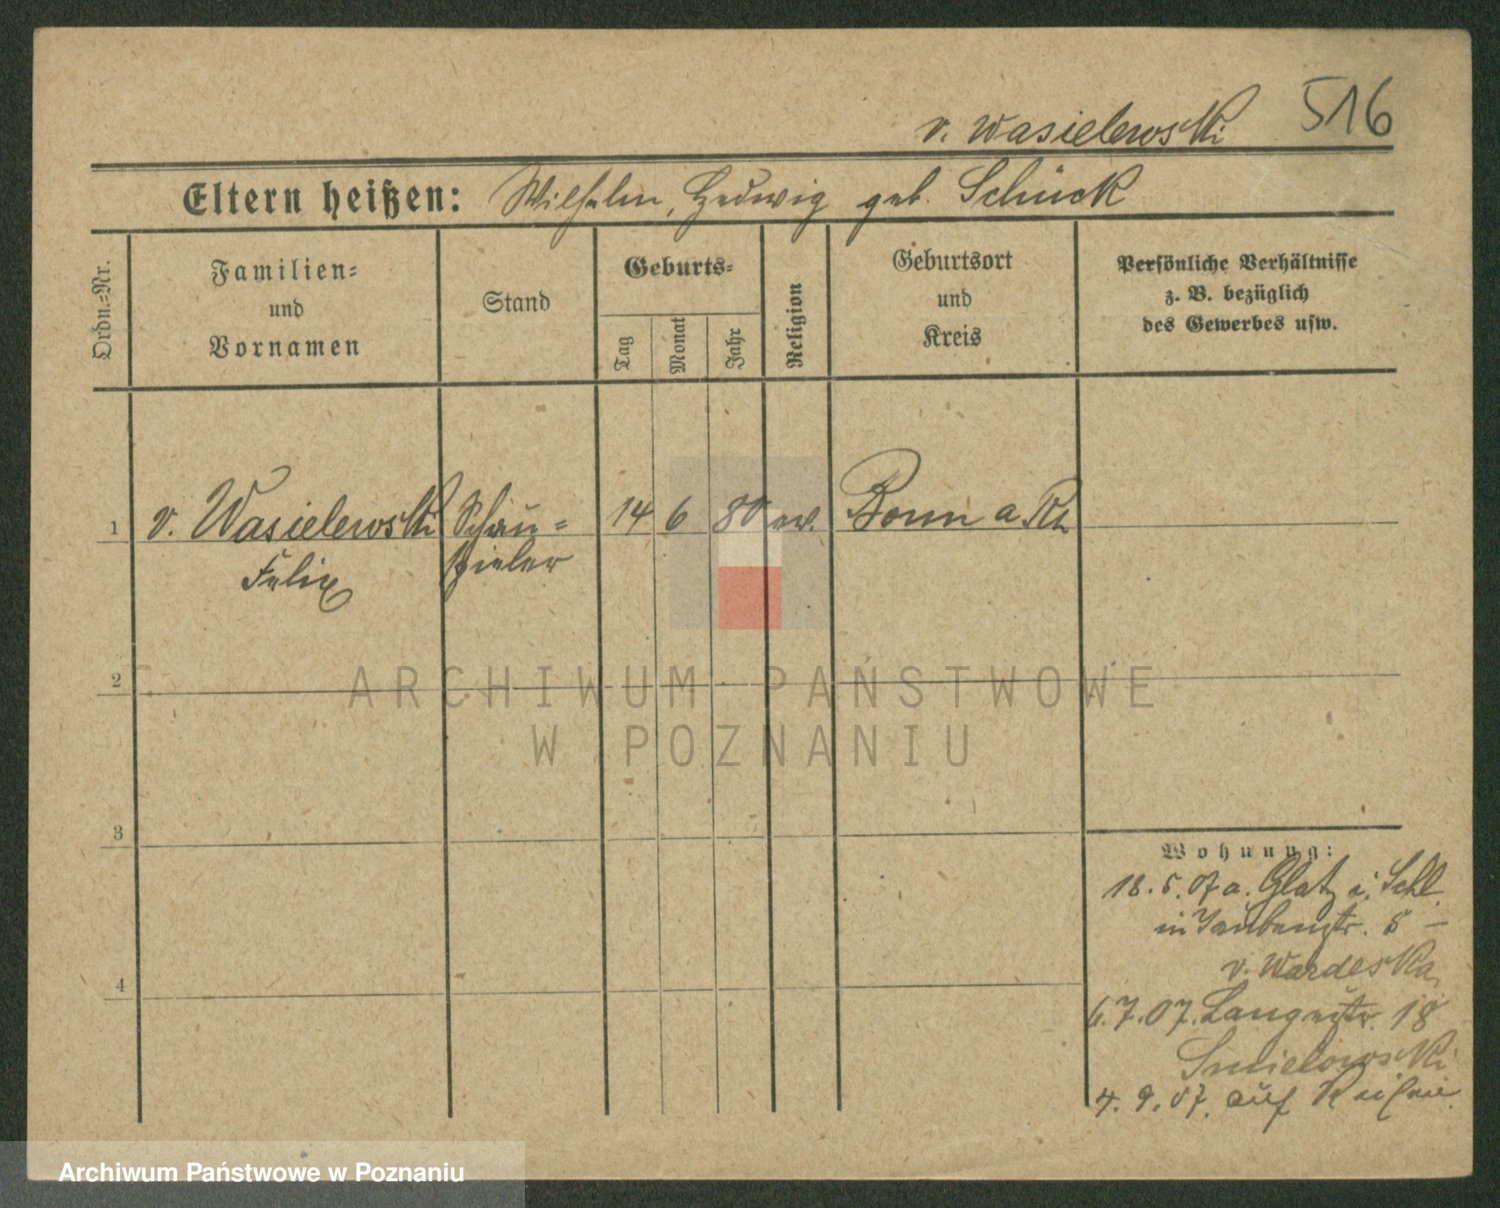 516
v. Wasielewski
Eltern heißen: Wilhelm, Hedwig geb. Schück
Ordn.-Nr.
Familien-
und
Vornamen
Stand
Geburts-
Tag
Monat
Jahr
Religion
Geburtsort
und
Kreis
Persönliche Verhältnisse
z. B. bezüglich
des Gewerbes usw.
1 v. Wasielewski Schau- 14 6 80 ev. Bonn a Rh
Felix spieler
2
3
4
Wohnung:
18.5.07 a. Glatz i. Schl.
in Taubenstr. 5 –
v. Wardeska
6.7.07. Langestr. 18
Smielowski
4.9.07. auf Reisen
ARCHIWUM PAŃSTWOWE
W POZNANIU
Archiwum Państwowe w Poznaniu